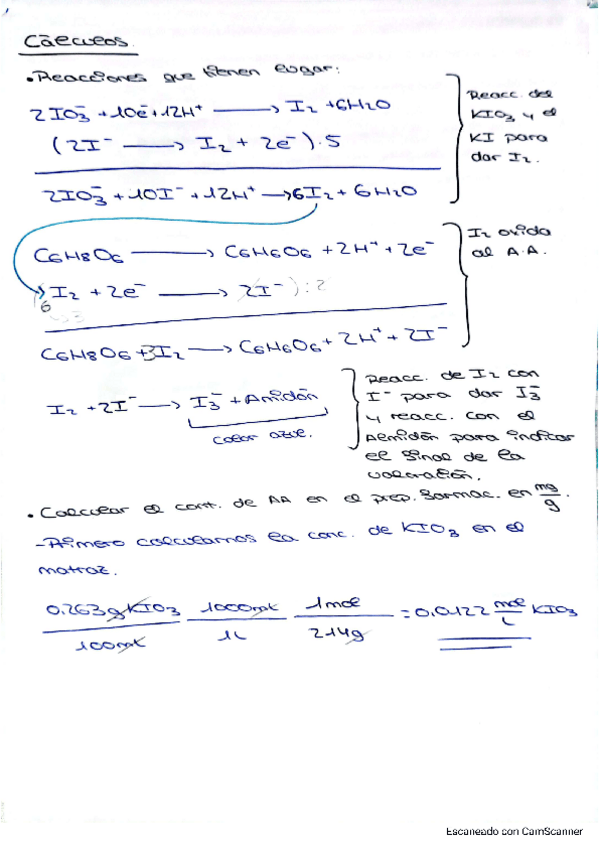 Cálculos.
• Reacciones que tienen lugar:
2IO3⁻ + 10e⁻ + 12H⁺ → I2 + 6H2O
(2I⁻ → I2 + 2e⁻)·5
2IO3⁻ + 10I⁻ + 12H⁺ → 6I2 + 6H2O
Reacc. del
KIO3 y el
KI para
dar I2.
C6H8O6 → C6H6O6 + 2H⁺ + 2e⁻
6 I2 + 2e⁻ → 2I⁻ ) : 2
C6H8O6 + 3I2 → C6H6O6 + 2H⁺ + 2I⁻
I2 oxida
al A.A.
I2 + 2I⁻ → I3⁻ + Amidón
color azul.
Reacc. de I2 con
I⁻ para dar I3⁻
y reacc. con el
Almidón para indicar
el final de la
valoración.
• Calcular el cont. de AA en el prep. farmac. en mg/g.
- Primero calculamos la conc. de KIO3 en el
matraz.
0.263g KIO3 / 100mL · 1000mL / 1L · 1mol / 214g = 0,0122 mol/L KIO3
Escaneado con CamScanner